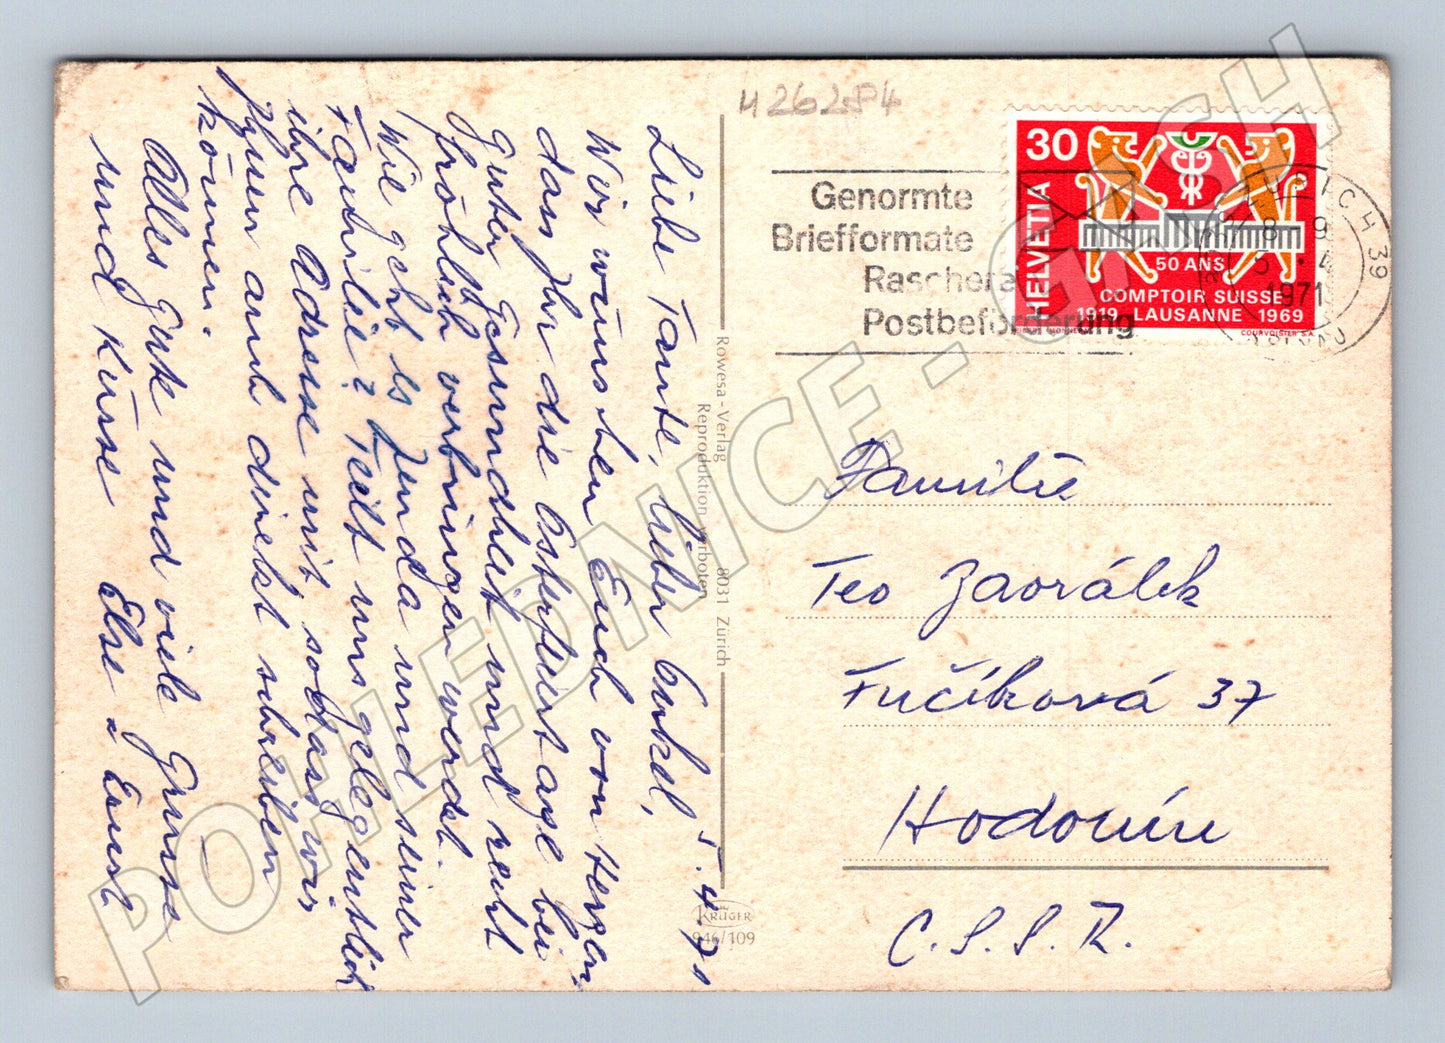 4262P4
Genormte
Briefformate
Rascherei
Postbeförderung
30
HELVETIA
50 ANS
COMPTOIR SUISSE
1919 LAUSANNE 1969
COURVOISIER S.A.
1971
39
5.4.71
Liebe Tante, lieber Onkel,
Wir wünschen Euch von Herzen
dass Ihr die Osterfeiertage bei
guter Gesundheit und recht
fröhlich verbringen werdet.
Wie geht es Zenda und seiner
Familie? Teilt uns gelegentlich
ihre Adresse mit, sodass wir
Ihnen auch direkt schreiben
können.
Alles Gute und viele Grüsse
und Küsse Else & Ernst
Rowesa - Verlag 8031 Zürich
Reproduktion verboten
KRÜGER
946/109
Familie
Teo Zaorálek
Fučíková 37
Hodonín
Č.S.S.R.
POHLEDNICE - CASH